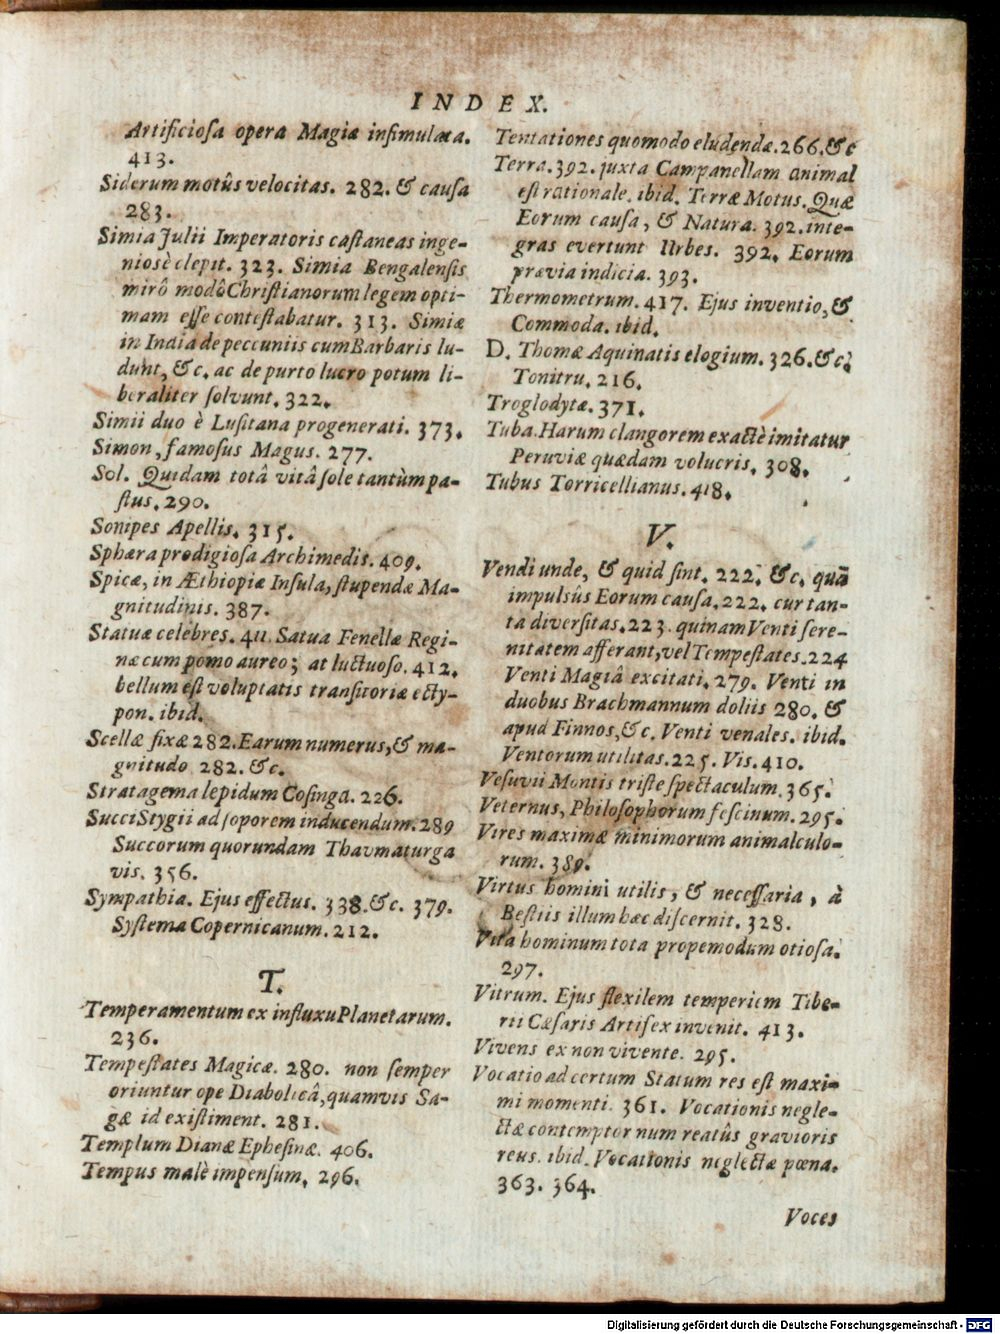 INDEX.
Artificiosa opera Magiæ insimulata.
413.
Siderum motûs velocitas. 282. & causa
283.
Simia Julii Imperatoris castaneas inge-
niosè clepit. 323. Simia Bengalensis
mirô modô Christianorum legem opti-
mam esse contestabatur. 313. Simiæ
in India de peccuniis cum Barbaris lu-
dunt, &c. ac de purto lucro potum li-
beraliter solvunt. 322.
Simii duo è Lusitana progenerati. 373.
Simon, famosus Magus. 277.
Sol. Quidam totâ vitâ sole tantùm pa-
stus. 290.
Sonipes Apellis. 315.
Sphæra prodigiosa Archimedis. 409.
Spicæ, in Æthiopiæ Insula, stupendæ Ma-
gnitudinis. 387.
Statuæ celebres. 411. Satua Fenellæ Regi-
næ cum pomo aureo; at luctuoso. 412.
bellum est voluptatis transitoriæ ecty-
pon. ibid.
Scellæ fixæ 282. Earum numerus, & ma-
gnitudo 282. &c.
Stratagema lepidum Cosinga. 226.
Succi Stygii ad soporem inducendum. 289
Succorum quorundam Thavmaturga
vis. 356.
Sympathia. Ejus effectus. 338. &c. 379.
Systema Copernicanum. 212.
T.
Temperamentum ex influxu Planetarum.
236.
Tempestates Magicæ. 280. non semper
oriuntur ope Diabolicâ, quamvis Sa-
gæ id existiment. 281.
Templum Dianæ Ephesinæ. 406.
Tempus malè impensum. 296.
Tentationes quomodo eludendæ. 266. &c
Terra. 392. juxta Campanellam animal
est rationale. ibid. Terræ Motus. Quæ
Eorum causa, & Natura. 392. inte-
gras evertunt Urbes. 392. Eorum
prævia indicia. 393.
Thermometrum. 417. Ejus inventio, &
Commoda. ibid.
D. Thomæ Aquinatis elogium. 326. &c.
Tonitru. 216.
Troglodytæ. 371.
Tuba. Harum clangorem exactè imitatur
Peruviæ quædam volucris. 308.
Tubus Torricellianus. 418.
V.
Vendi unde, & quid sint. 222. &c. quæ
impulsûs Eorum causa. 222. cur tan-
ta diversitas. 223. quinam Venti sere-
nitatem afferant, vel Tempestates. 224
Venti Magiâ excitati. 279. Venti in
duobus Brachmannum doliis 280. &
apud Finnos, &c. Venti venales. ibid.
Ventorum utilitas. 225. Vis. 410.
Vesuvii Montis triste spectaculum. 365.
Veternus, Philosophorum fescinum. 295.
Vires maximæ minimorum animalculo-
rum. 389.
Virtus homini utilis, & necessaria, à
Bestiis illum hæc discernit. 328.
Vita hominum tota propemodum otiosa.
297.
Vitrum. Ejus flexilem temperiem Tibe-
rii Cæsaris Artifex invenit. 413.
Vivens ex non vivente. 295.
Vocatio ad certum Statum res est maxi-
mi momenti. 361. Vocationis negle-
ctæ contemptor num reatûs gravioris
reus. ibid. Vocationis neglectæ pœna.
363. 364.
Voces
Digitalisierung gefördert durch die Deutsche Forschungsgemeinschaft - DFG